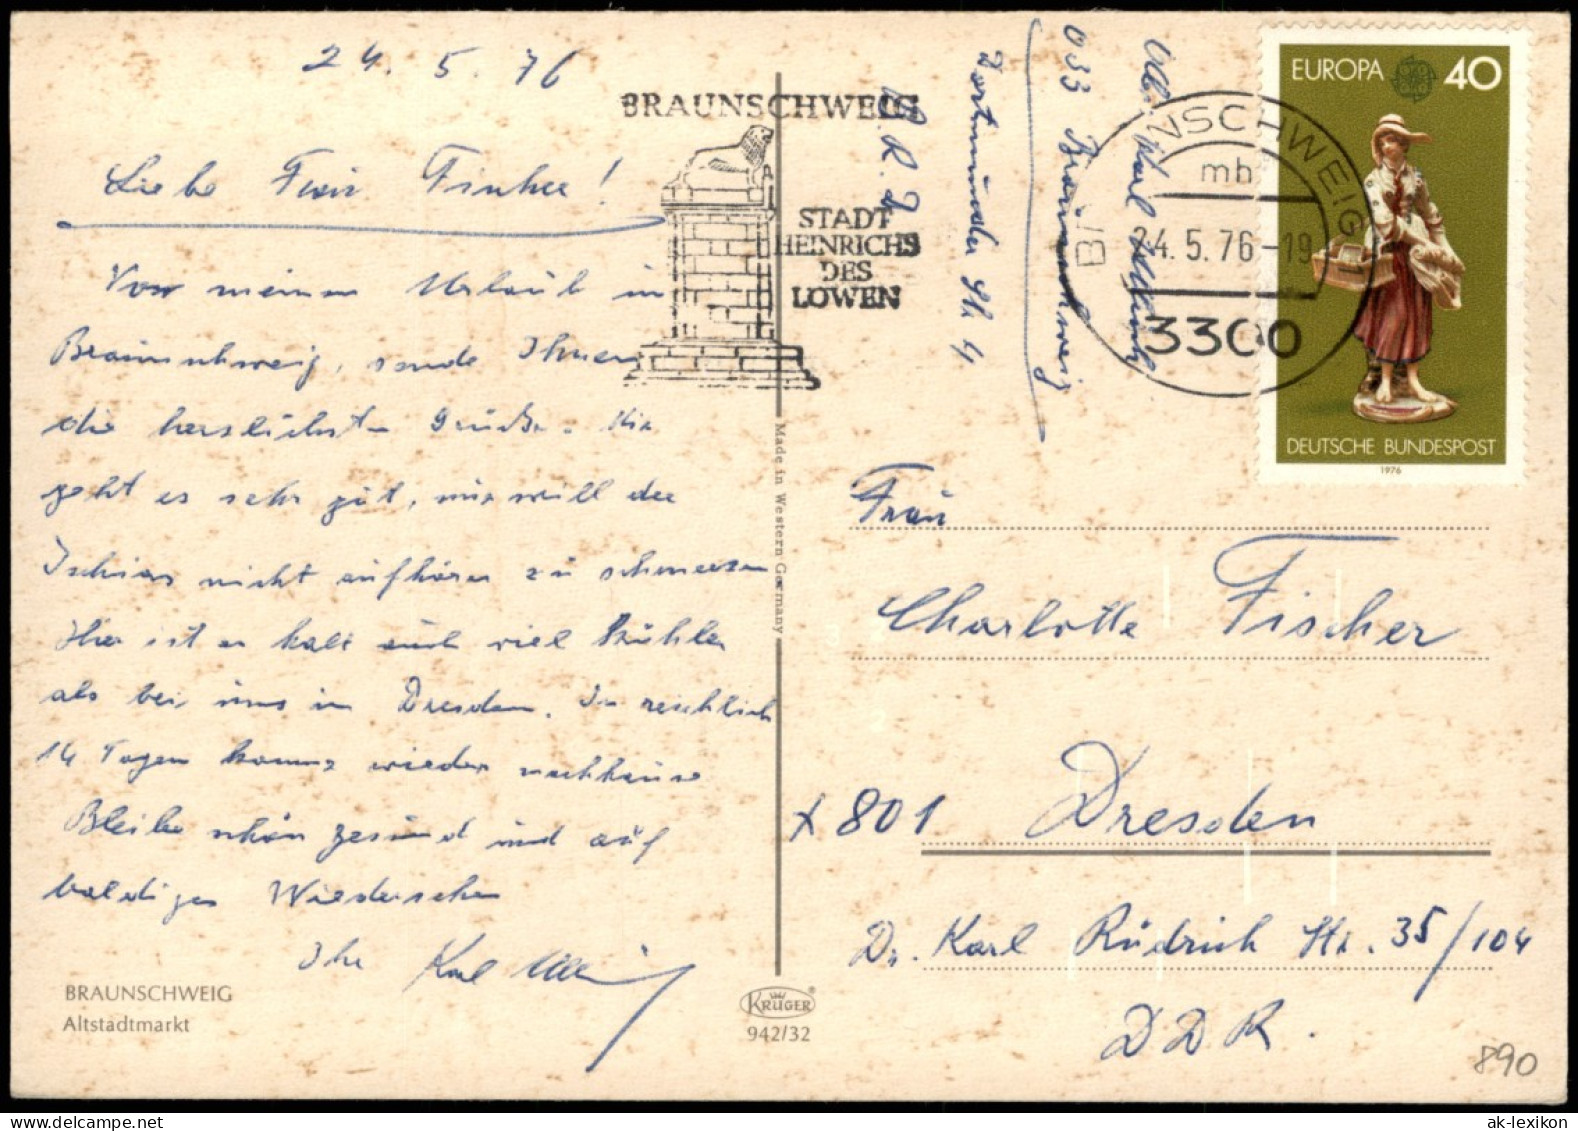 24. 5. 76
Liebe Frau Fischer!
Von meinem Urlaub in
Braunschweig, sende Ihnen
die herzlichsten Grüße. Mir
geht es sehr gut, nur will der
Ischias nicht aufhören zu schmerzen
Hier ist es kalt auch viel kühler
als bei uns in Dresden. In reichlich
14 Tagen komme wieder nachhause
Bleibe schön gesund und auf
baldiges Wiedersehen
Ihr Karl
BRAUNSCHWEIG
Altstadtmarkt
BRAUNSCHWEIG
STADT
HEINRICHS
DES
LÖWEN
Made in Western Germany
KRÜGER
942/32
Abs. Karl
033 Braunschweig
Dortmunder Str. 4
B.R.D.
BRAUNSCHWEIG 1
mh
24.5.76-19
3300
EUROPA 40
DEUTSCHE BUNDESPOST
1976
Frau
Charlotte Fischer
x 801 Dresden
Dr. Karl Rüdrich Str. 35/104
DDR.
890
ak-lexikon